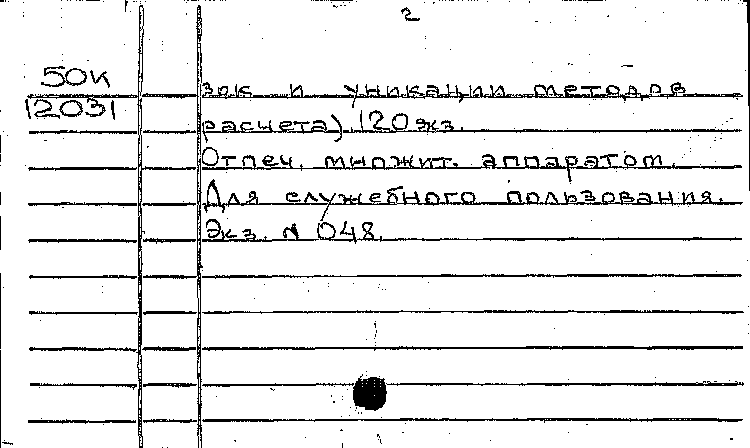 2
50К
12031
зок и уникации методов
расчета). 120 экз.
Отпеч. множит. аппаратом.
Для служебного пользования.
Экз. N 048.